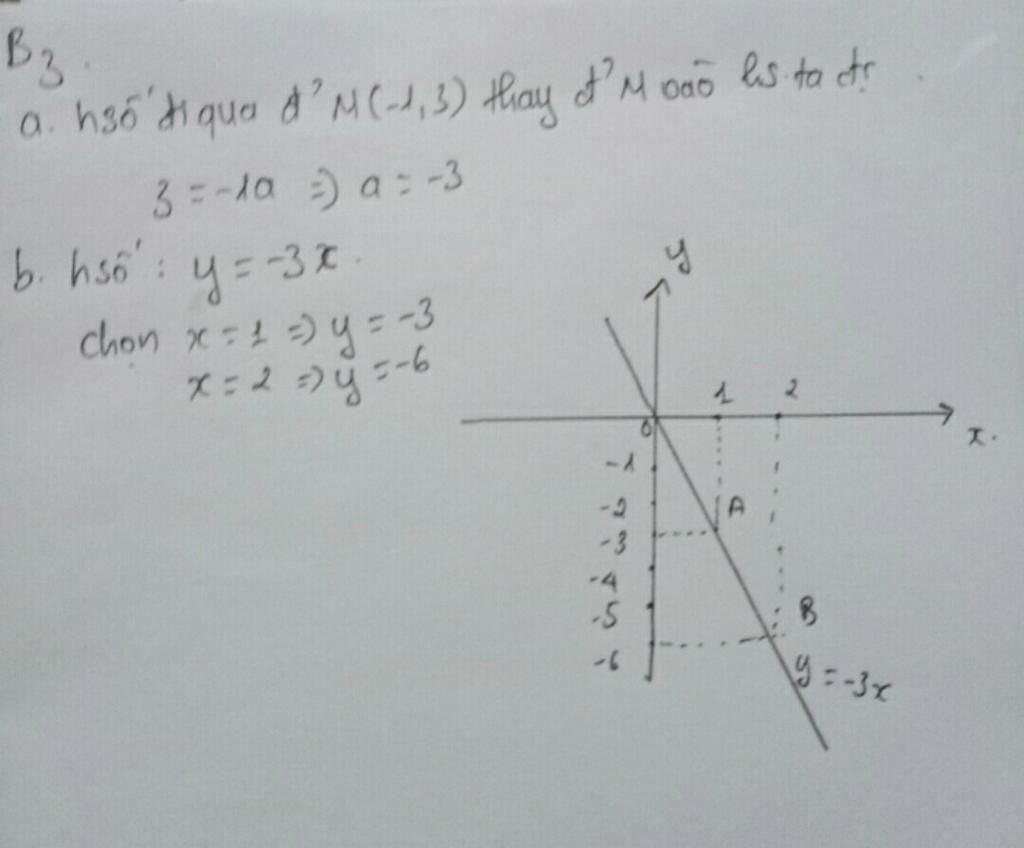 B3.
a. hsố đi qua đ' M(-1,3) thay đ' M vào hs ta đc
3 = -1a => a = -3
b. hsố : y = -3x.
chọn x = 1 => y = -3
x = 2 => y = -6
y
1 2
0
x.
-1
-2 A
-3
-4
-5 B
-6
y = -3x